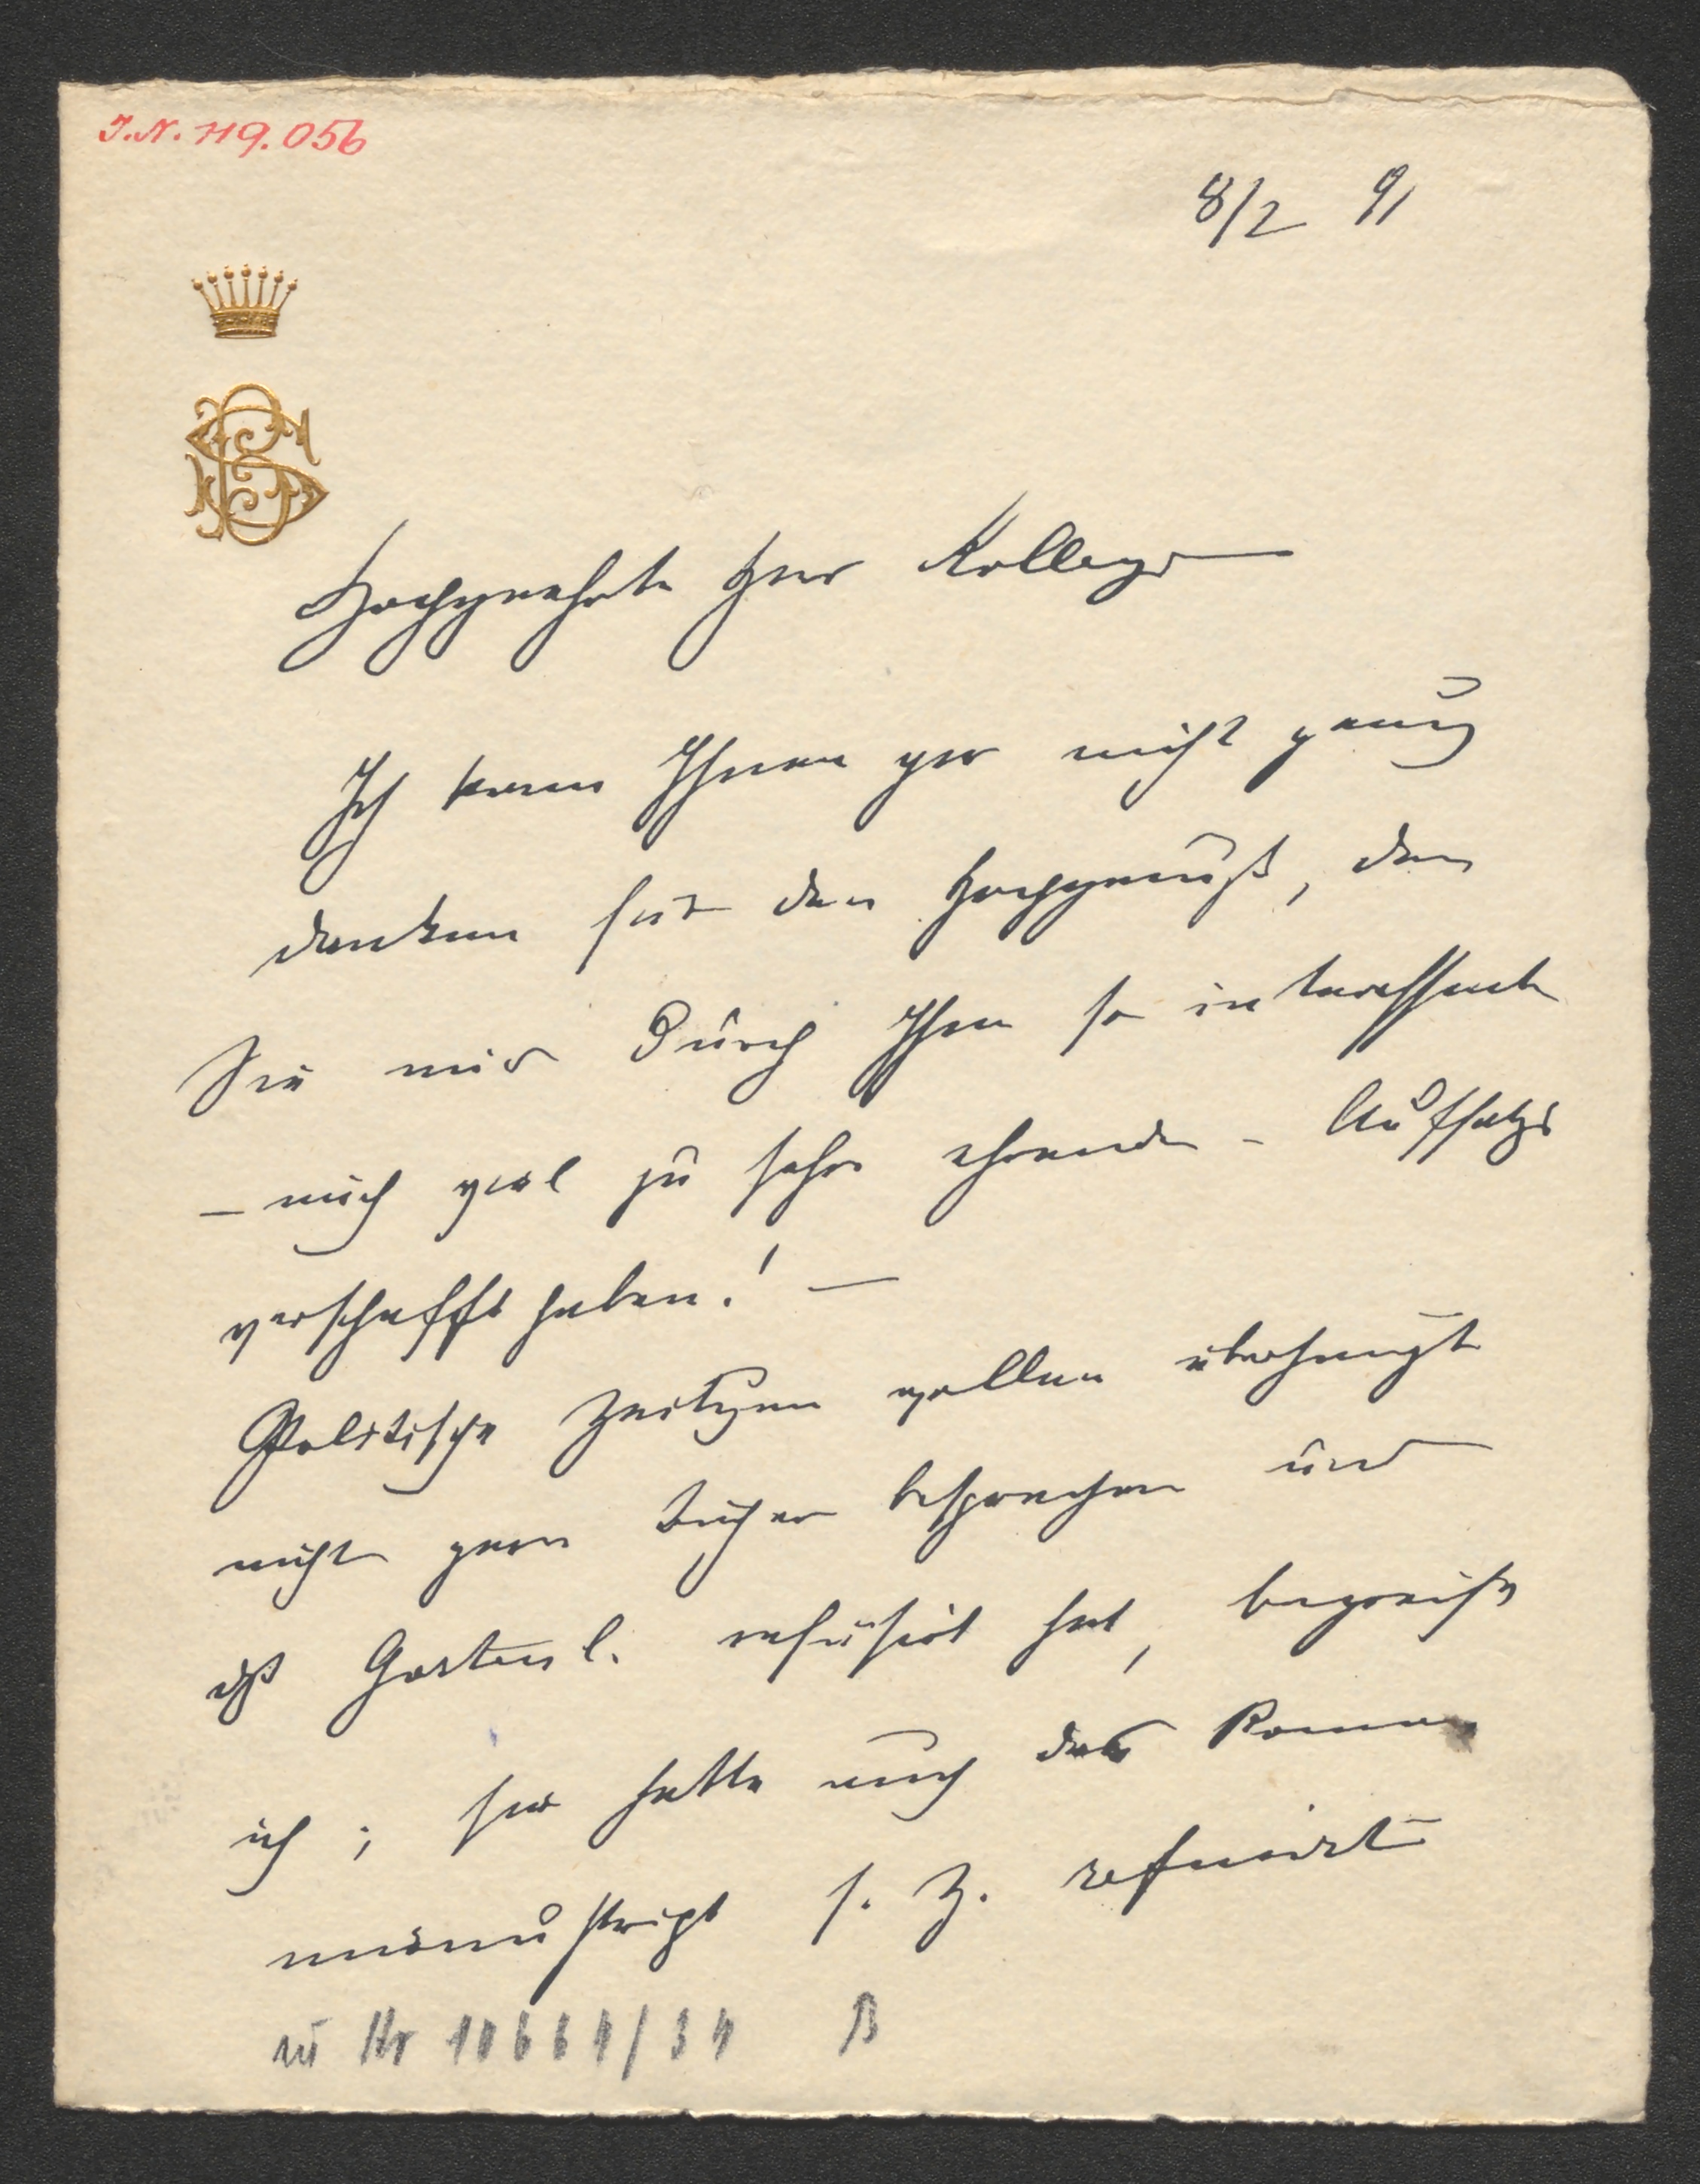 J.N. 119.056
8/2 91
BS
Hochgeehrter Herr Kollege
Ich kann Ihnen gar nicht genug
danken für den Hochgenuß, den
Sie mir durch Ihren so interessanten
– mich viel zu sehr ehrenden – Aufsatz
verschafft haben! –
Politische Zeitgen wollen überhaupt
nicht gern Bücher besprechen und
daß Gartenl. refüsirt hat, begreife
ich; sie hatte auch das Roman
manuskript s. Z. refusirt
zu Nr 10664/34 B